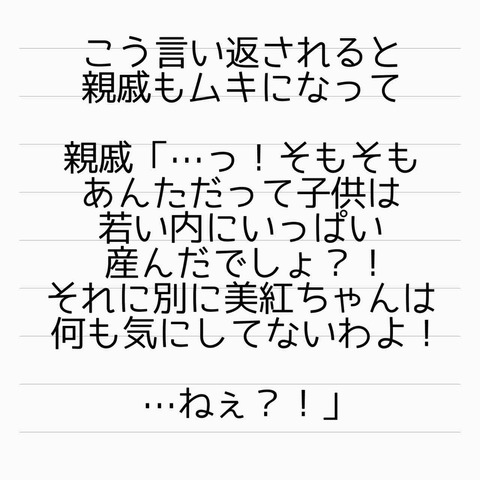 こう言い返されると
親戚もムキになって
親戚「…っ！そもそも
あんただって子供は
若い内にいっぱい
産んだでしょ？！
それに別に美紅ちゃんは
何も気にしてないわよ！
…ねぇ？！」